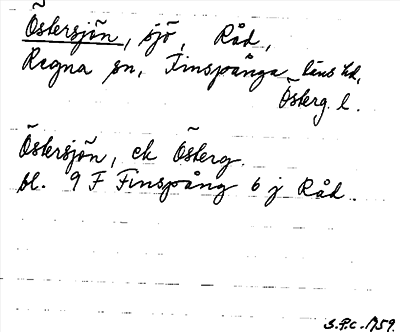 Östersjön, sjö, Råd,
Regna sn, Finspånga läns hd,
Österg. l.
Östersjön, ek Österg.
bl. 9 F Finspång 6 j Råd.
S.P.C. 1759.